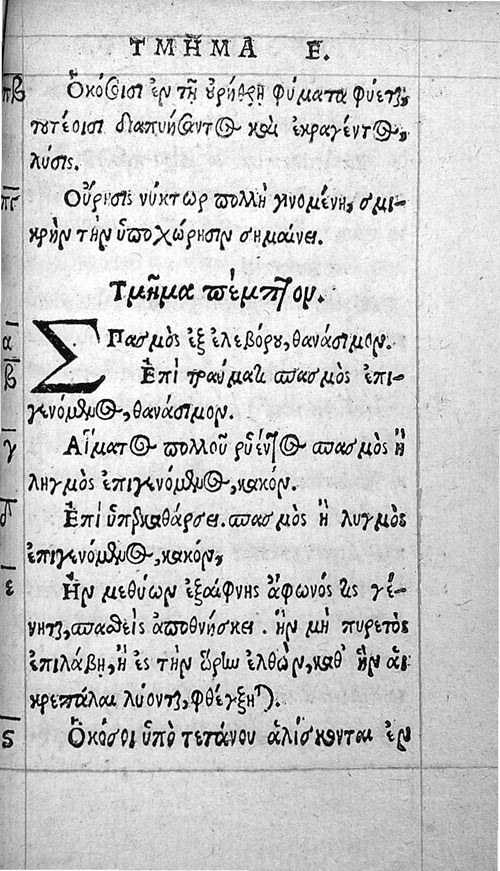 ΤΜΗ͂ΜΑ Ε.
πβ Ὁκόσοισι ἐν τῇ οὐρήθρῃ φύματα φύεται,
τουτέοισι διαπυήσαντος καὶ ἐκραγέντος,
λύσις.
πγ Οὔρησις νύκτωρ πολλὴ γινομένη, σμι-
κρὴν τὴν ὑποχώρησιν σημαίνει.
Τμῆμα πέμπτον.
α Σπασμὸς ἐξ ἐλεβόρου, θανάσιμον.
β Ἐπὶ τραύματι σπασμὸς ἐπι-
γενόμενος, θανάσιμον.
γ Αἵματος πολλοῦ ῥυέντος σπασμὸς ἢ
λυγμὸς ἐπιγενόμενος, κακόν.
δ Ἐπὶ ὑπερκαθάρσει σπασμὸς ἢ λυγμὸς
ἐπιγενόμενος, κακόν,
ε Ἢν μεθύων ἐξαίφνης ἄφωνός τις γέ-
νηται, σπασθεὶς ἀποθνήσκει. ἢν μὴ πυρετὸς
ἐπιλάβῃ, ἢ ἐς τὴν ὥρην ἐλθὼν, καθ' ἣν αἱ
κρεπάλαι λύονται, φθέγξηται.
ς Ὁκόσοι ὑπὸ τετάνου ἁλίσκονται ἐν